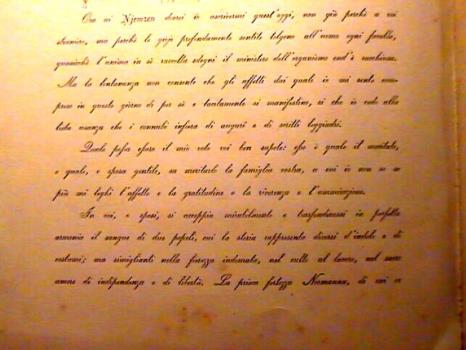 Ora vi N
 dovrei io scrivervi quest'oggi, non già perchè a voi
straniero, ma perchè le gioje profondamente sentite tolgono all'uomo ogni favella,
quasichè l'anima in sè raccolta sdegni il ministero dell'organismo ond'è racchiusa.
Ma la lontananza non consente che gli affetti dai quali io mi sento com-
preso in questo giorno di per sè e tacitamente si manifestino, sì che io cedo alla
lieta usanza che i connubi infiora di auguri e di scritti leggiadri.
Quale possa essere il mio voto voi ben sapete: chè è quale il meritate,
e quale, o sposa gentile, sa meritarlo la famiglia vostra, a cui io non so se
più mi leghi l'affetto o la gratitudine o la riverenza o l'ammirazione.
In voi, o sposi, si accoppia mirabilmente e trasfondesi in perfetta
armonia il sangue di due popoli, cui la storia rappresenta diversi d'indole e di
costumi; ma simiglianti nella fierezza indomata, nel culto al lavoro, nel sacro
amore di indipendenza e di libertà. La prisca fortezza Normanna, di cui vi